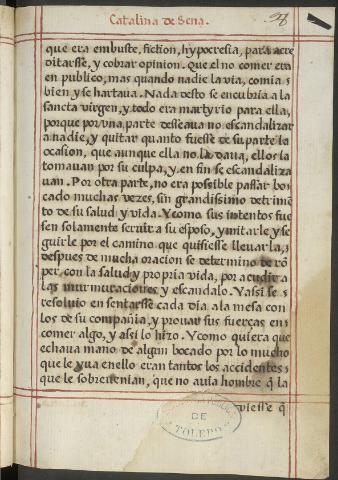 Catalina de Sena.
que era embuste, fiction, hypocresia, para acre
ditarsse, y cobrar opinion. Que el no comer era
en publico, mas quando nadie la via, comia
bien y se hartaua. Nada desto se encubria a la
sancta virgen, y todo era martyrio para ella,
porque por vna parte desseaua no escandalizar
a nadie, y quitar quanto fuesse de su parte la
ocasion, que aunque ella no la daua, ellos la
tomauan por su culpa, y en fin se escandaliza
uan. Por otra parte, no era posible passar bo
cado muchas vezes, sin grandissimo detrimē
to de su salud y vida. Y como sus intentos fue
sen solamente seruir a su esposo, y mitarle y se
guirle por el camino que quisiesse lleuarla,
despues de mucha oracion se determino de rō
per, con la salud y propria vida, por acudir a
las murmuraciones y escandalo. Y assi se
resoluio en sentarsse cada dia a la mesa con
los de su compañia, y prouar sus fuerças en
comer algo, y assi lo hizo. Y como quiera que
echaua mano de algun bocado por lo mucho
que le yua en ello eran tantos los accidentes
que le sobreuenian, que no auia hombre q̄ la
viesse q̄
DE
TOLEDO